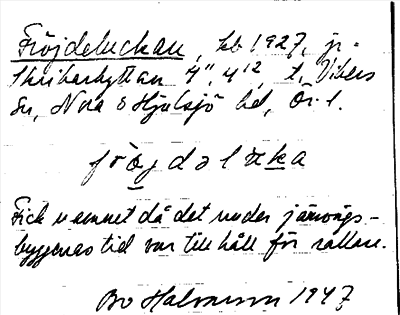 Fröjdeluckan, hb 1927, jr.
Skrikarhyttan 4", 4¹², t. Vikers
sn, Nora o Hjulsjö bd, Ör. l.
fröjdəlɯka
Fick namnet då det under järnvägs-
byggenas tid var till håll för rallare.
Bo Halvarson 1947